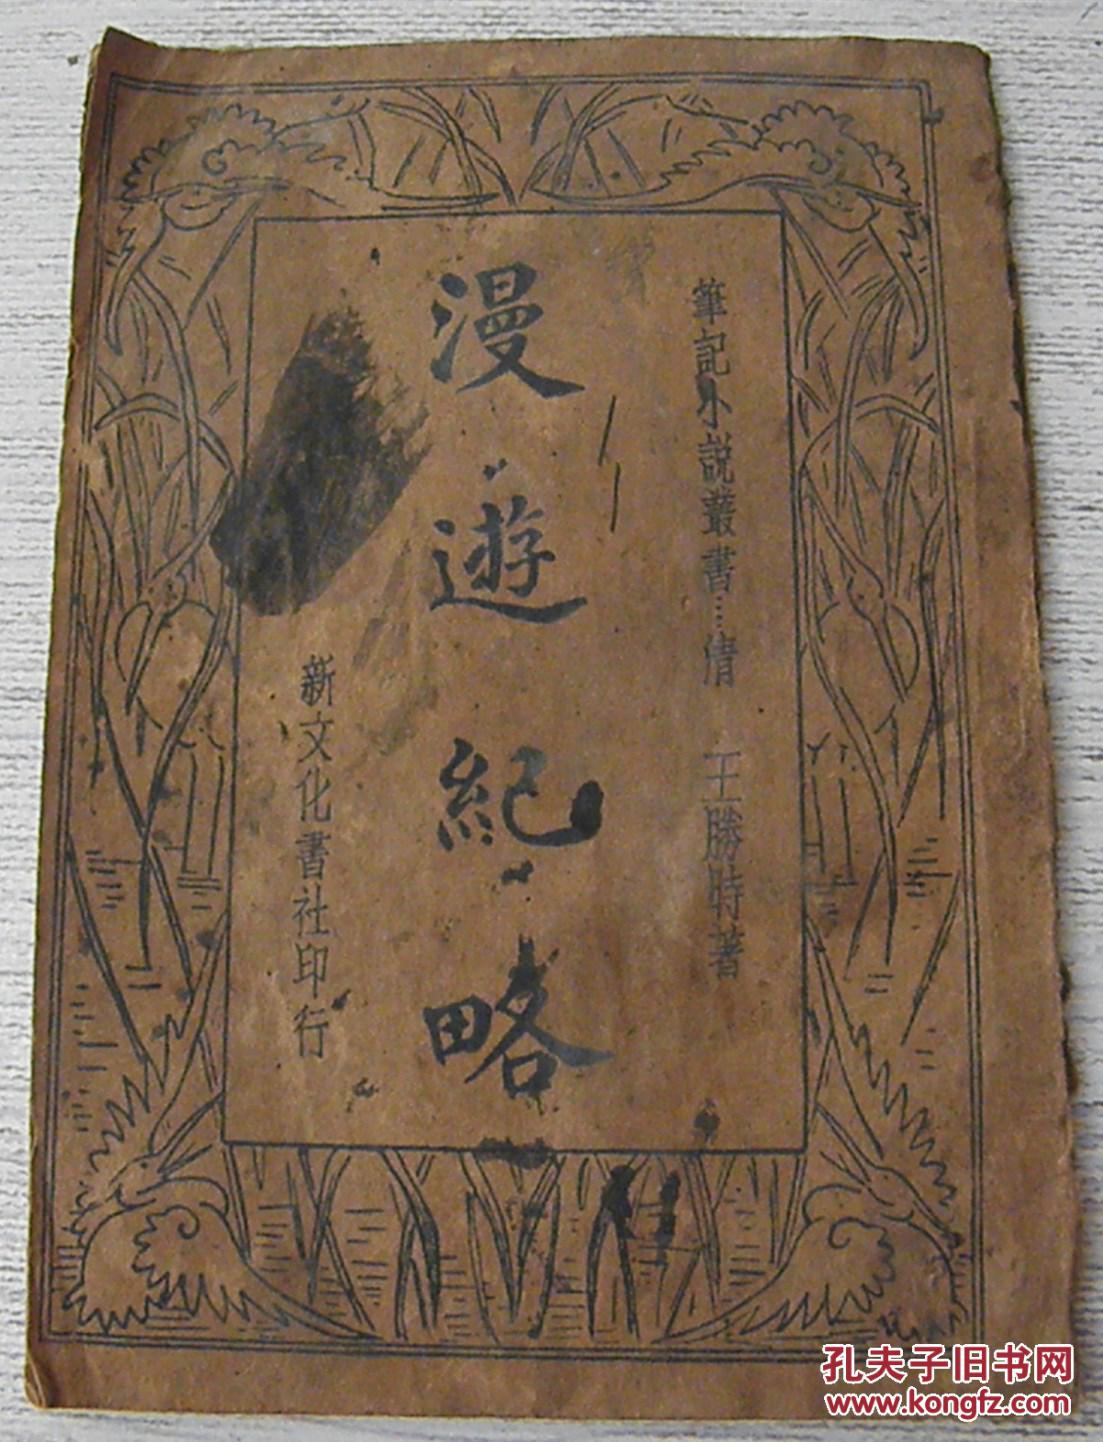 筆記小説叢書…清 王勝時著
漫遊紀略
新文化書社印行
孔夫子旧书网
www.kongfz.com